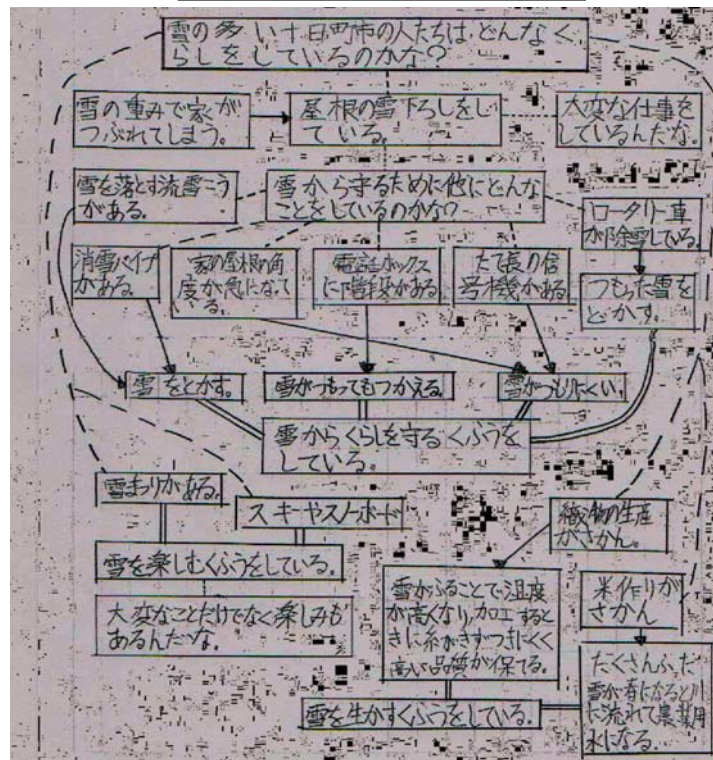 雪の多い十日町市の人たちは、どんなく
らしをしているのかな？
雪の重みで家が
つぶれてしまう。
屋根の雪下ろしをし
ている。
大変な仕事を
しているんだな。
雪を落とす流雪こう
がある。
雪から守るために他にどんな
ことをしているのかな？
ロータリー車
が除雪している。
消雪パイプ
がある。
家の屋根の角
度が急になって
いる。
電話ボックス
に階段がある
たて長の信
号機がある
つもった雪を
どかす。
雪をとかす。
雪がつもってもつかえる。
雪がつもりにくい。
雪からくらしを守るくふうを
している。
雪まつりがある。
スキーやスノーボード
織物の生産
がさかん。
雪を楽しむくふうをしている。
大変なことだけでなく楽しみも
あるんだな。
雪がふることで湿度
が高くなり、加工すると
きに糸がきずつきにくく
高い品質が保てる。
米作りが
さかん
たくさんふった
雪が春になると川
に流れて農業用
水になる。
雪を生かすくふうをしている。